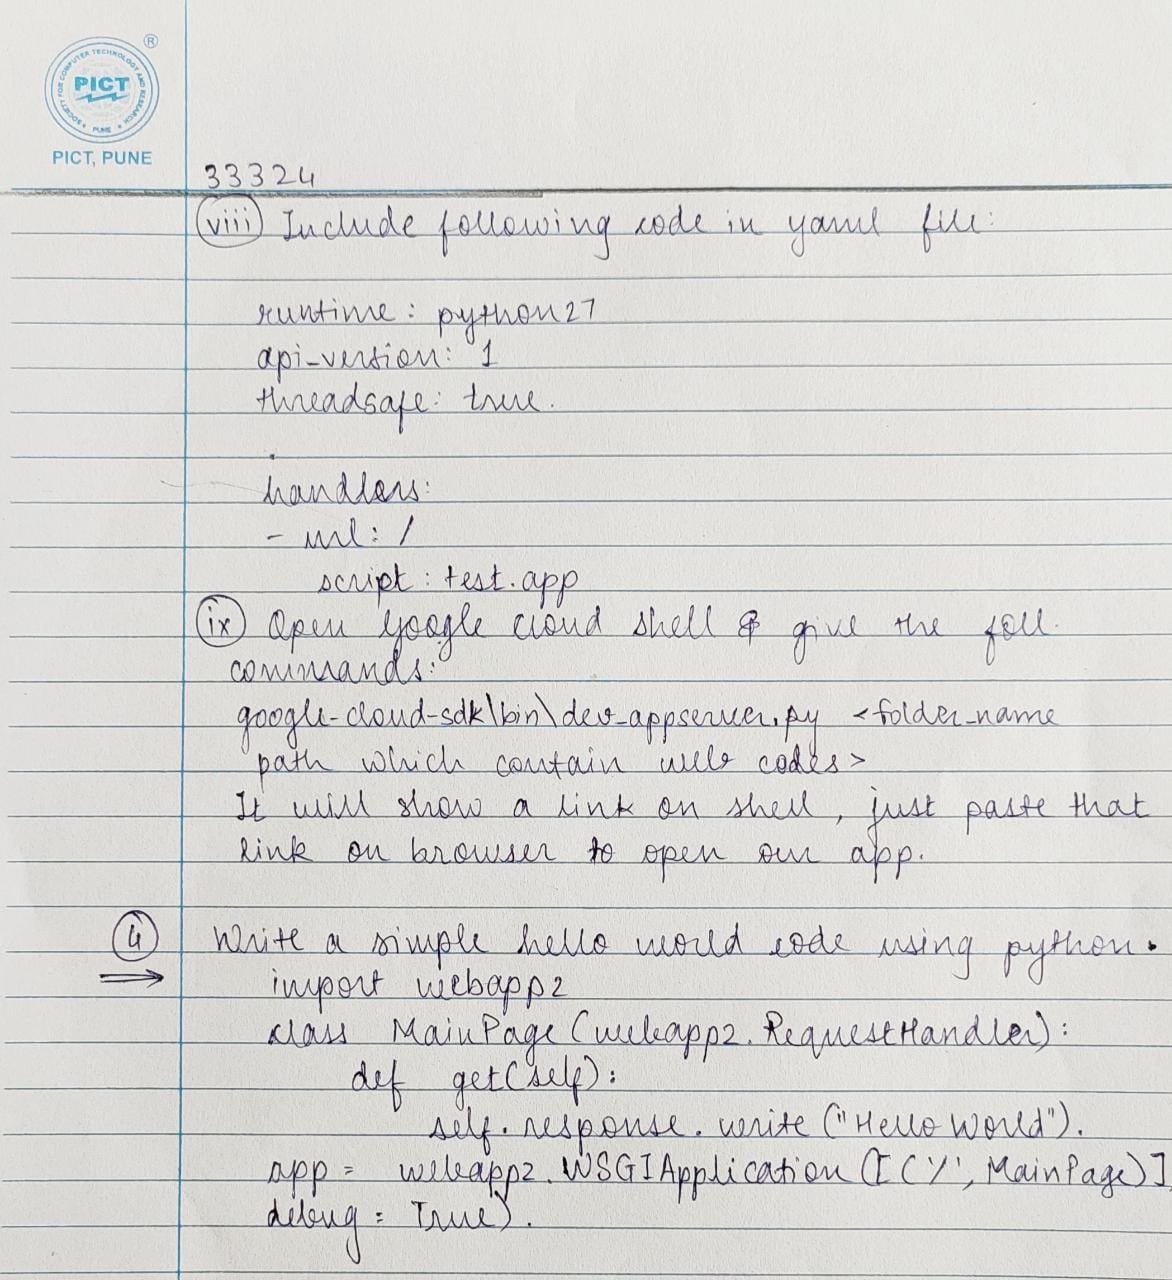 SOCIETY FOR COMPUTER TECHNOLOGY AND RESEARCH
PICT
PUNE
®
PICT, PUNE
33324
viii Include following code in yaml file:
runtime: python27
api-version: 1
threadsafe: true.
handlers:
- url: /
script: test.app
ix Open google cloud shell & give the foll.
commands:
google-cloud-sdk\bin\dev-appserver.py <folder_name
path which contain web codes>
It will show a link on shell, just paste that
link on browser to open our app.
4 Write a simple hello world code using python.
⇒ import webapp2
class MainPage (webapp2.RequestHandler):
def get(self):
self.response.write ("Hello World").
app = webapp2.WSGIApplication ([('/', MainPage)]
debug = True).